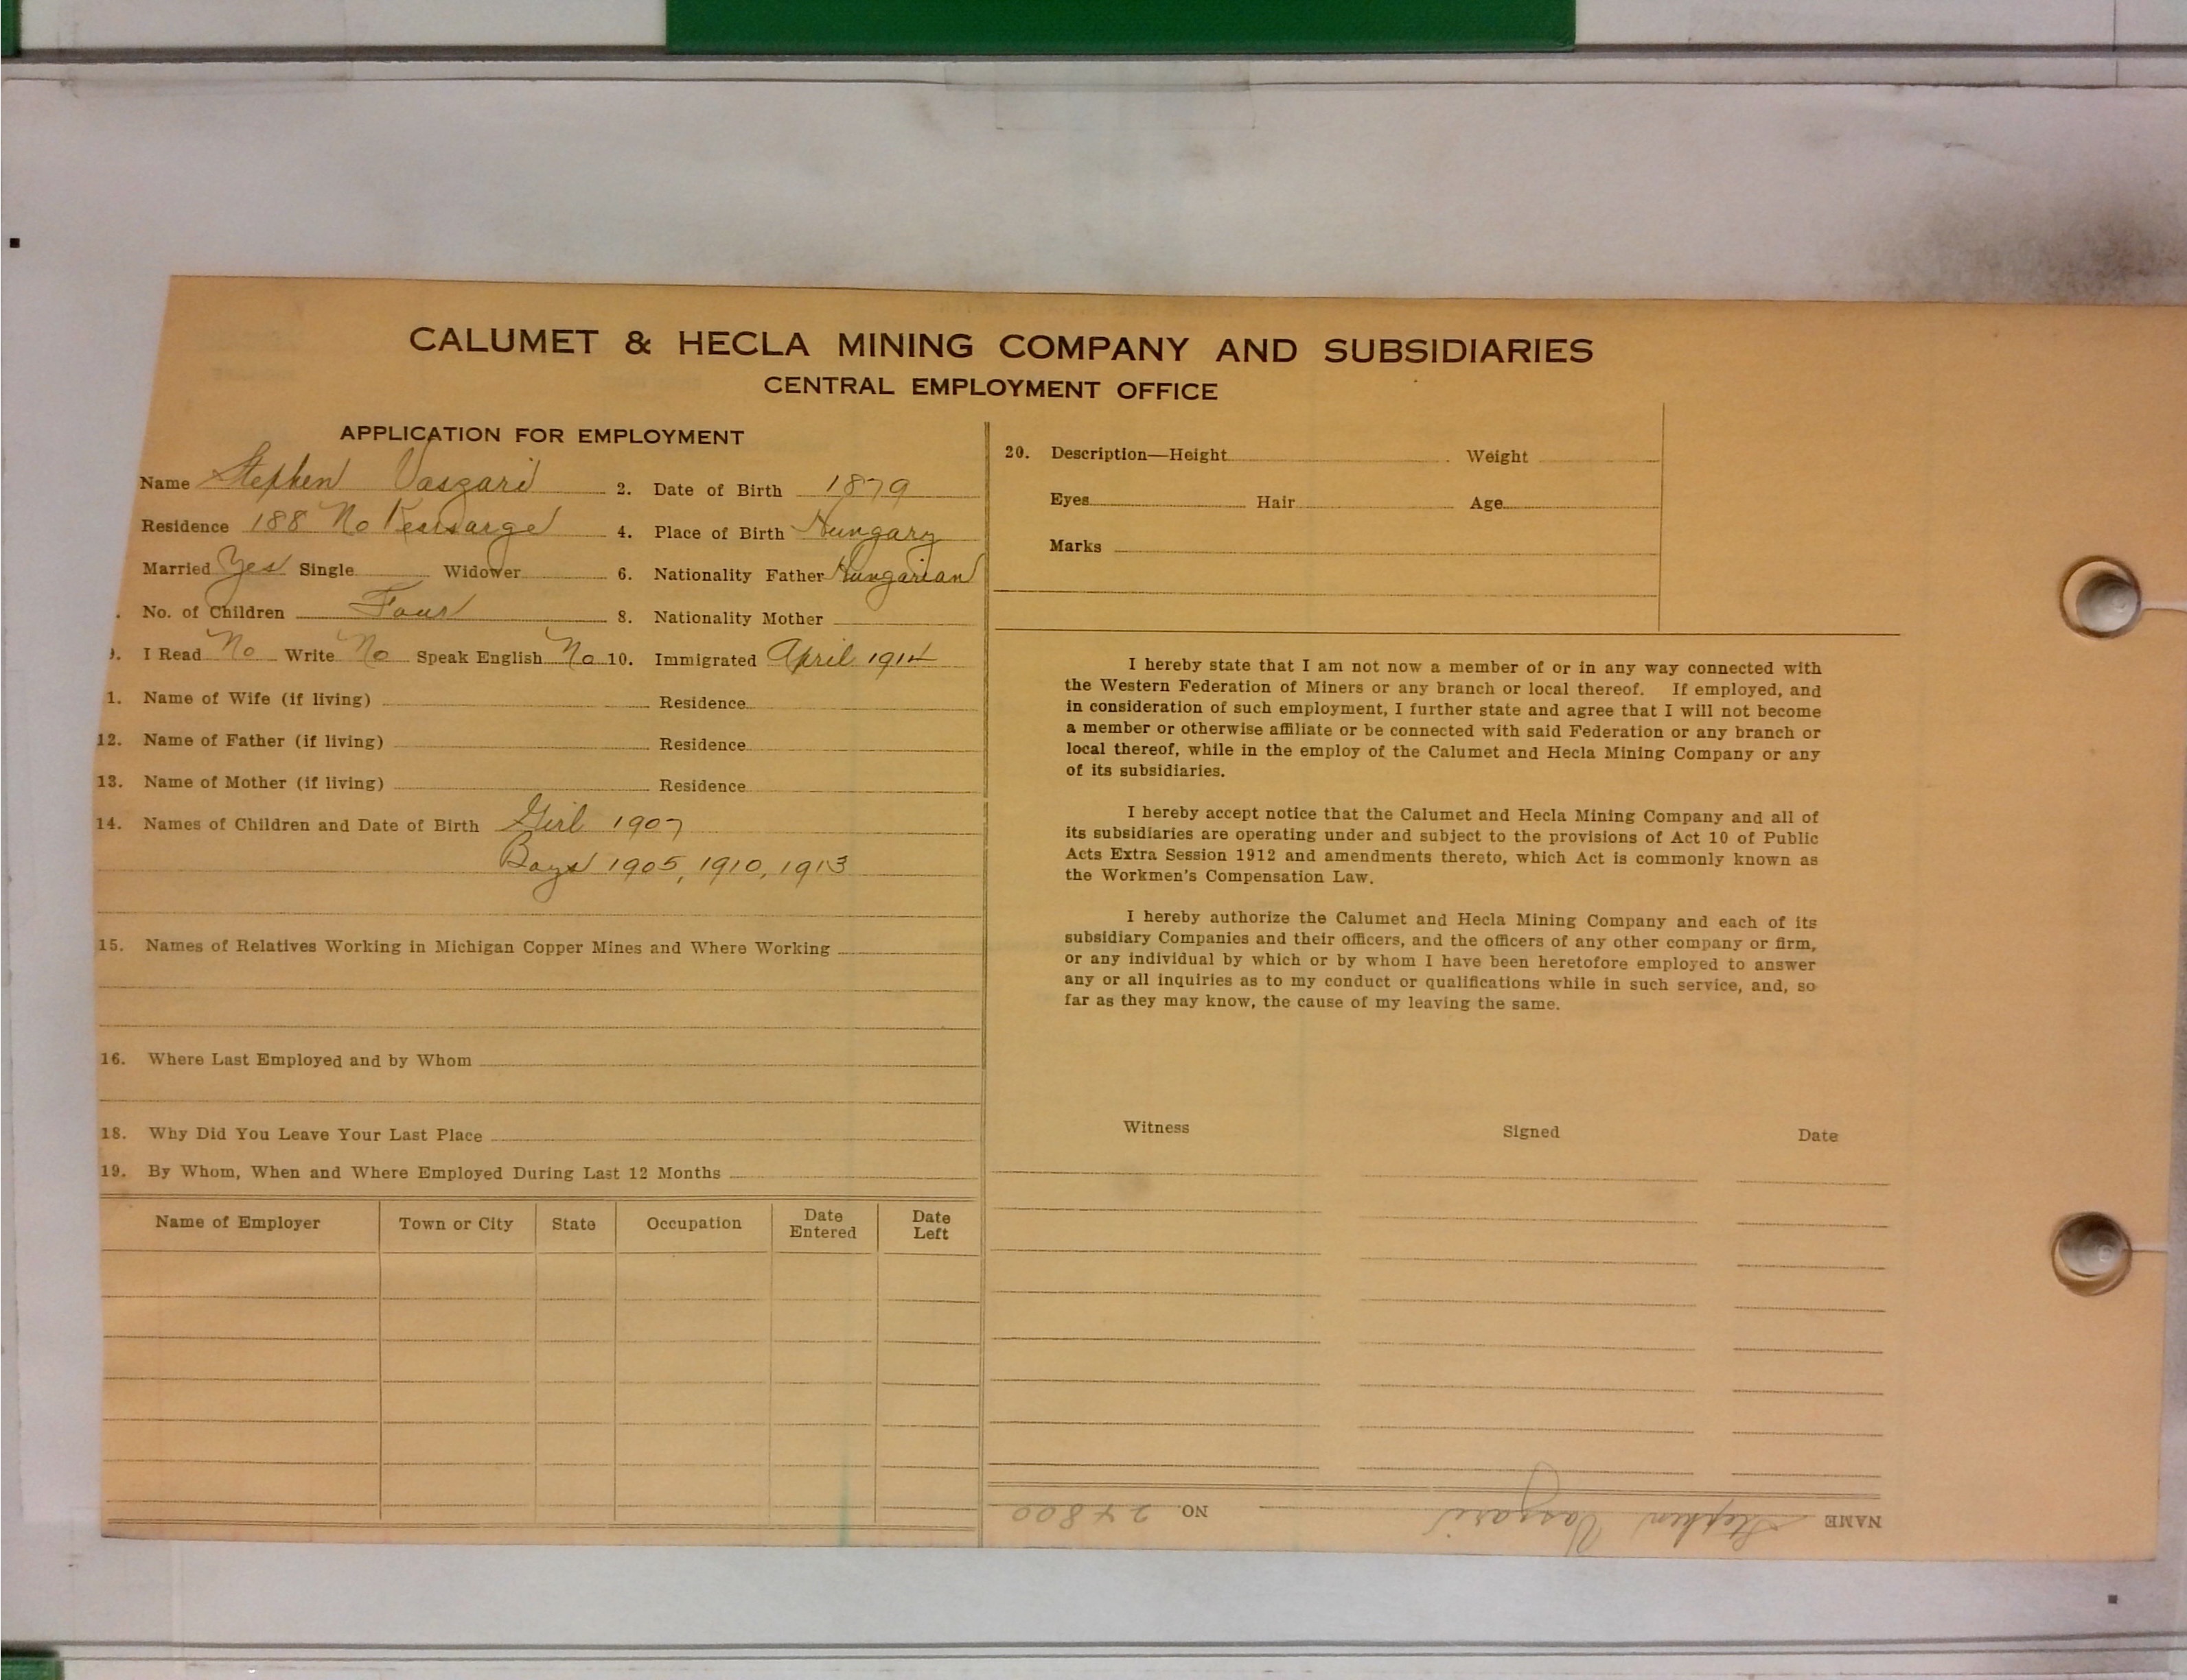 CALUMET & HECLA MINING COMPANY AND SUBSIDIARIES
CENTRAL EMPLOYMENT OFFICE
APPLICATION FOR EMPLOYMENT
Name Stephen Vaszari 2. Date of Birth 1879
Residence 188 No Kearsarge 4. Place of Birth Hungary
Married Yes Single Widower 6. Nationality Father Hungarian
No. of Children Four 8. Nationality Mother
9. I Read No Write No Speak English No 10. Immigrated April 1914
1. Name of Wife (if living) Residence
12. Name of Father (if living) Residence
13. Name of Mother (if living) Residence
14. Names of Children and Date of Birth Girl 1907
Boys 1905, 1910, 1913
15. Names of Relatives Working in Michigan Copper Mines and Where Working
16. Where Last Employed and by Whom
18. Why Did You Leave Your Last Place
19. By Whom, When and Where Employed During Last 12 Months
Name of Employer Town or City State Occupation Date Entered Date Left
20. Description—Height Weight
Eyes Hair Age
Marks
I hereby state that I am not now a member of or in any way connected with
the Western Federation of Miners or any branch or local thereof. If employed, and
in consideration of such employment, I further state and agree that I will not become
a member or otherwise affiliate or be connected with said Federation or any branch or
local thereof, while in the employ of the Calumet and Hecla Mining Company or any
of its subsidiaries.
I hereby accept notice that the Calumet and Hecla Mining Company and all of
its subsidiaries are operating under and subject to the provisions of Act 10 of Public
Acts Extra Session 1912 and amendments thereto, which Act is commonly known as
the Workmen's Compensation Law.
I hereby authorize the Calumet and Hecla Mining Company and each of its
subsidiary Companies and their officers, and the officers of any other company or firm,
or any individual by which or by whom I have been heretofore employed to answer
any or all inquiries as to my conduct or qualifications while in such service, and, so
far as they may know, the cause of my leaving the same.
Witness Signed Date
NAME Stephen Vaszari NO. 24800